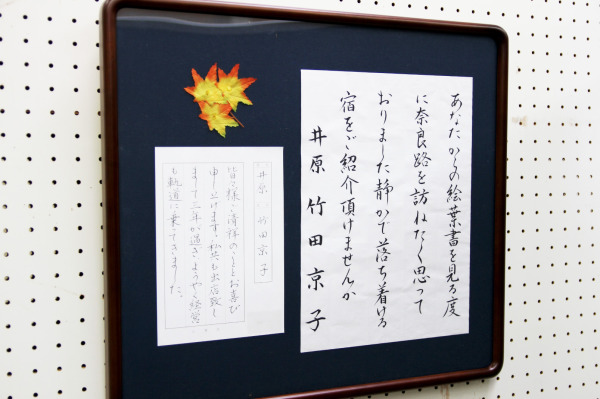 あなたからの絵葉書を見る度
に奈良路を訪ねたく思って
おりました静かで落ち着ける
宿をご紹介頂けませんか
井原 竹田京子
井原 竹田京子
皆々様ご清祥のこととお喜び
申し上げます。私共も出店致し
まして三年が過ぎようやく経営
も軌道に乗てきました。